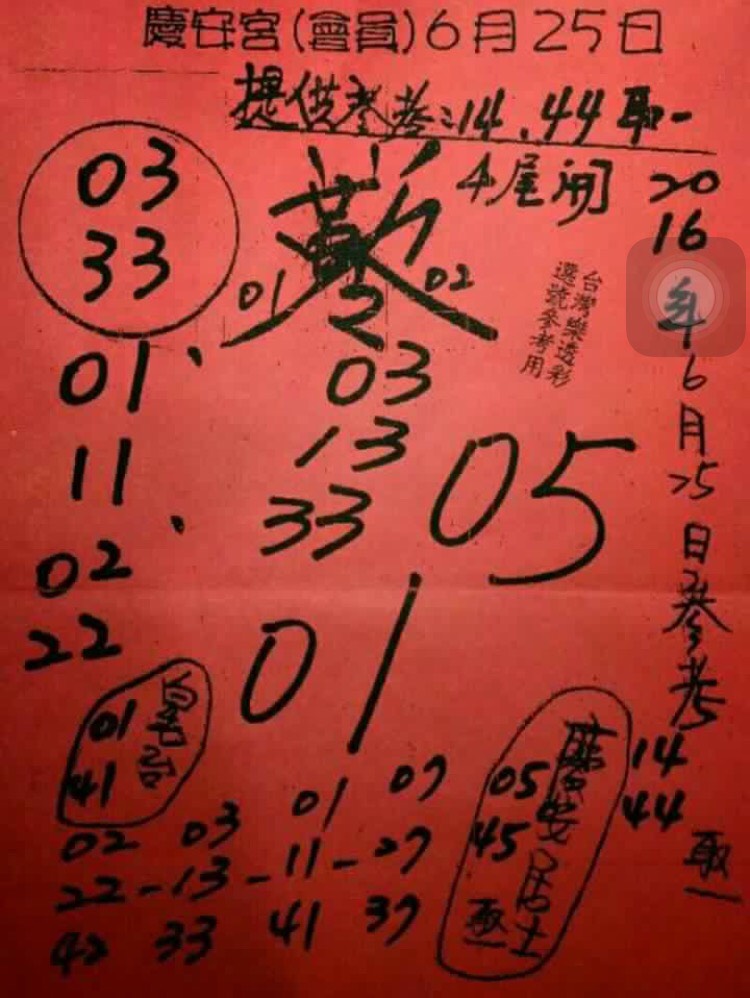 慶安宮(會員)6月25日
提供參考:14.44取一
4尾開
03
33
01 02
2
台灣樂透彩
選號參考用
2016年6月25日參考
14
44
取一
01、
11、
02
22
03
13
33
05
01
01
41
02 03 01 07
22-13-11-27
42 33 41 37
慶安居士
05
45
取一